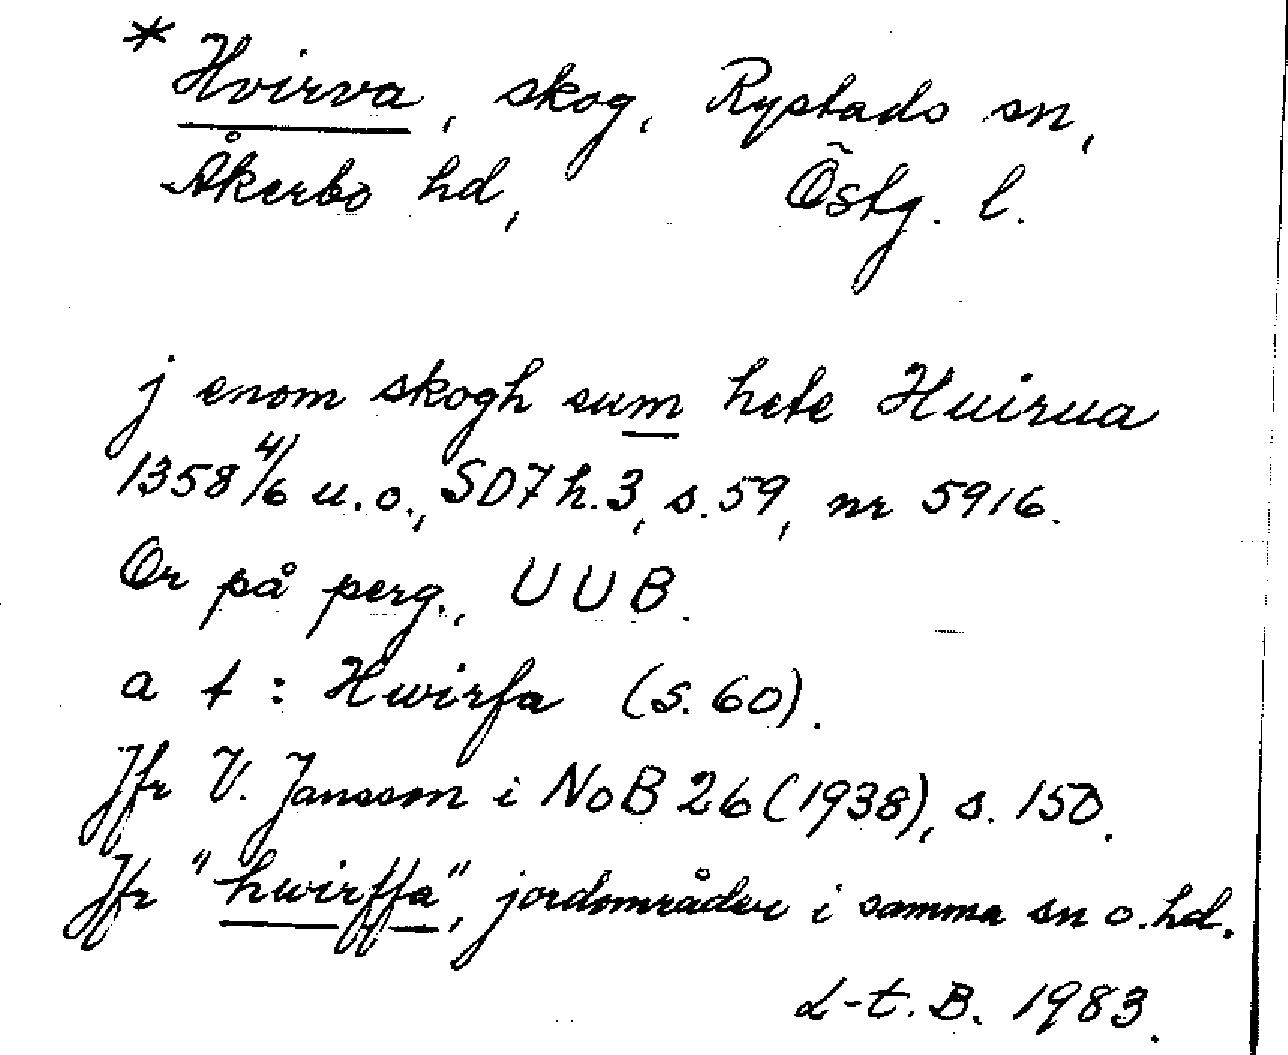 * Hvirva, skog, Rystads sn,
Åkerbo hd, Östg. l.
j enom skogh sum hete Huirua
1358 4/6 u.o., SD7 h.3, s.59, nr 5916.
Or på perg., UUB.
a t: Hwirfa (s. 60).
Jfr V. Jansson i NoB 26 (1938), s. 150.
Jfr "hwirffa", jordområde i samma sn o. hd.
L-t. B. 1983.